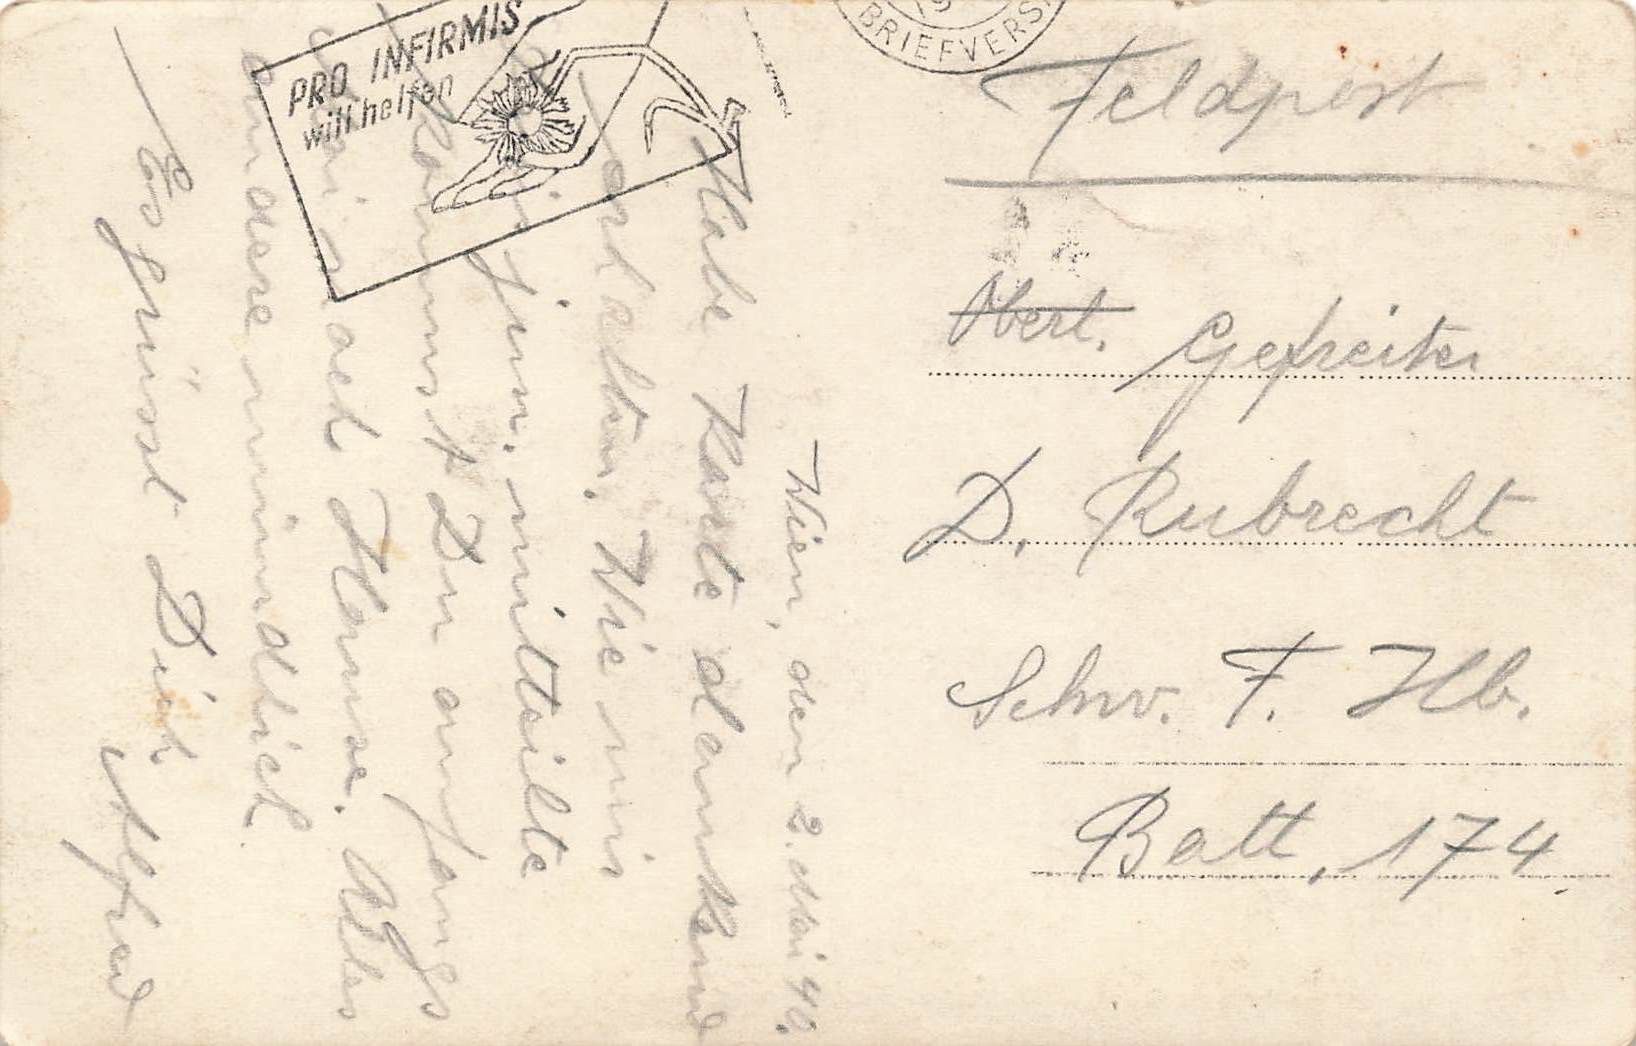 PRO INFIRMIS
will helfen
BRIEFVERS
Feldpost
Obert. Gefreiter
D. Rubrecht
Schw. F. Hb.
Batt, 174
Wien, den 2. Mai 40.
Habe Karte dankend
erhalten. Wie mir
jun. mitteilte
kommst Du anfangs
Mai nach Hause. Alles
andere mündlich
Es grüsst Dich Alfred